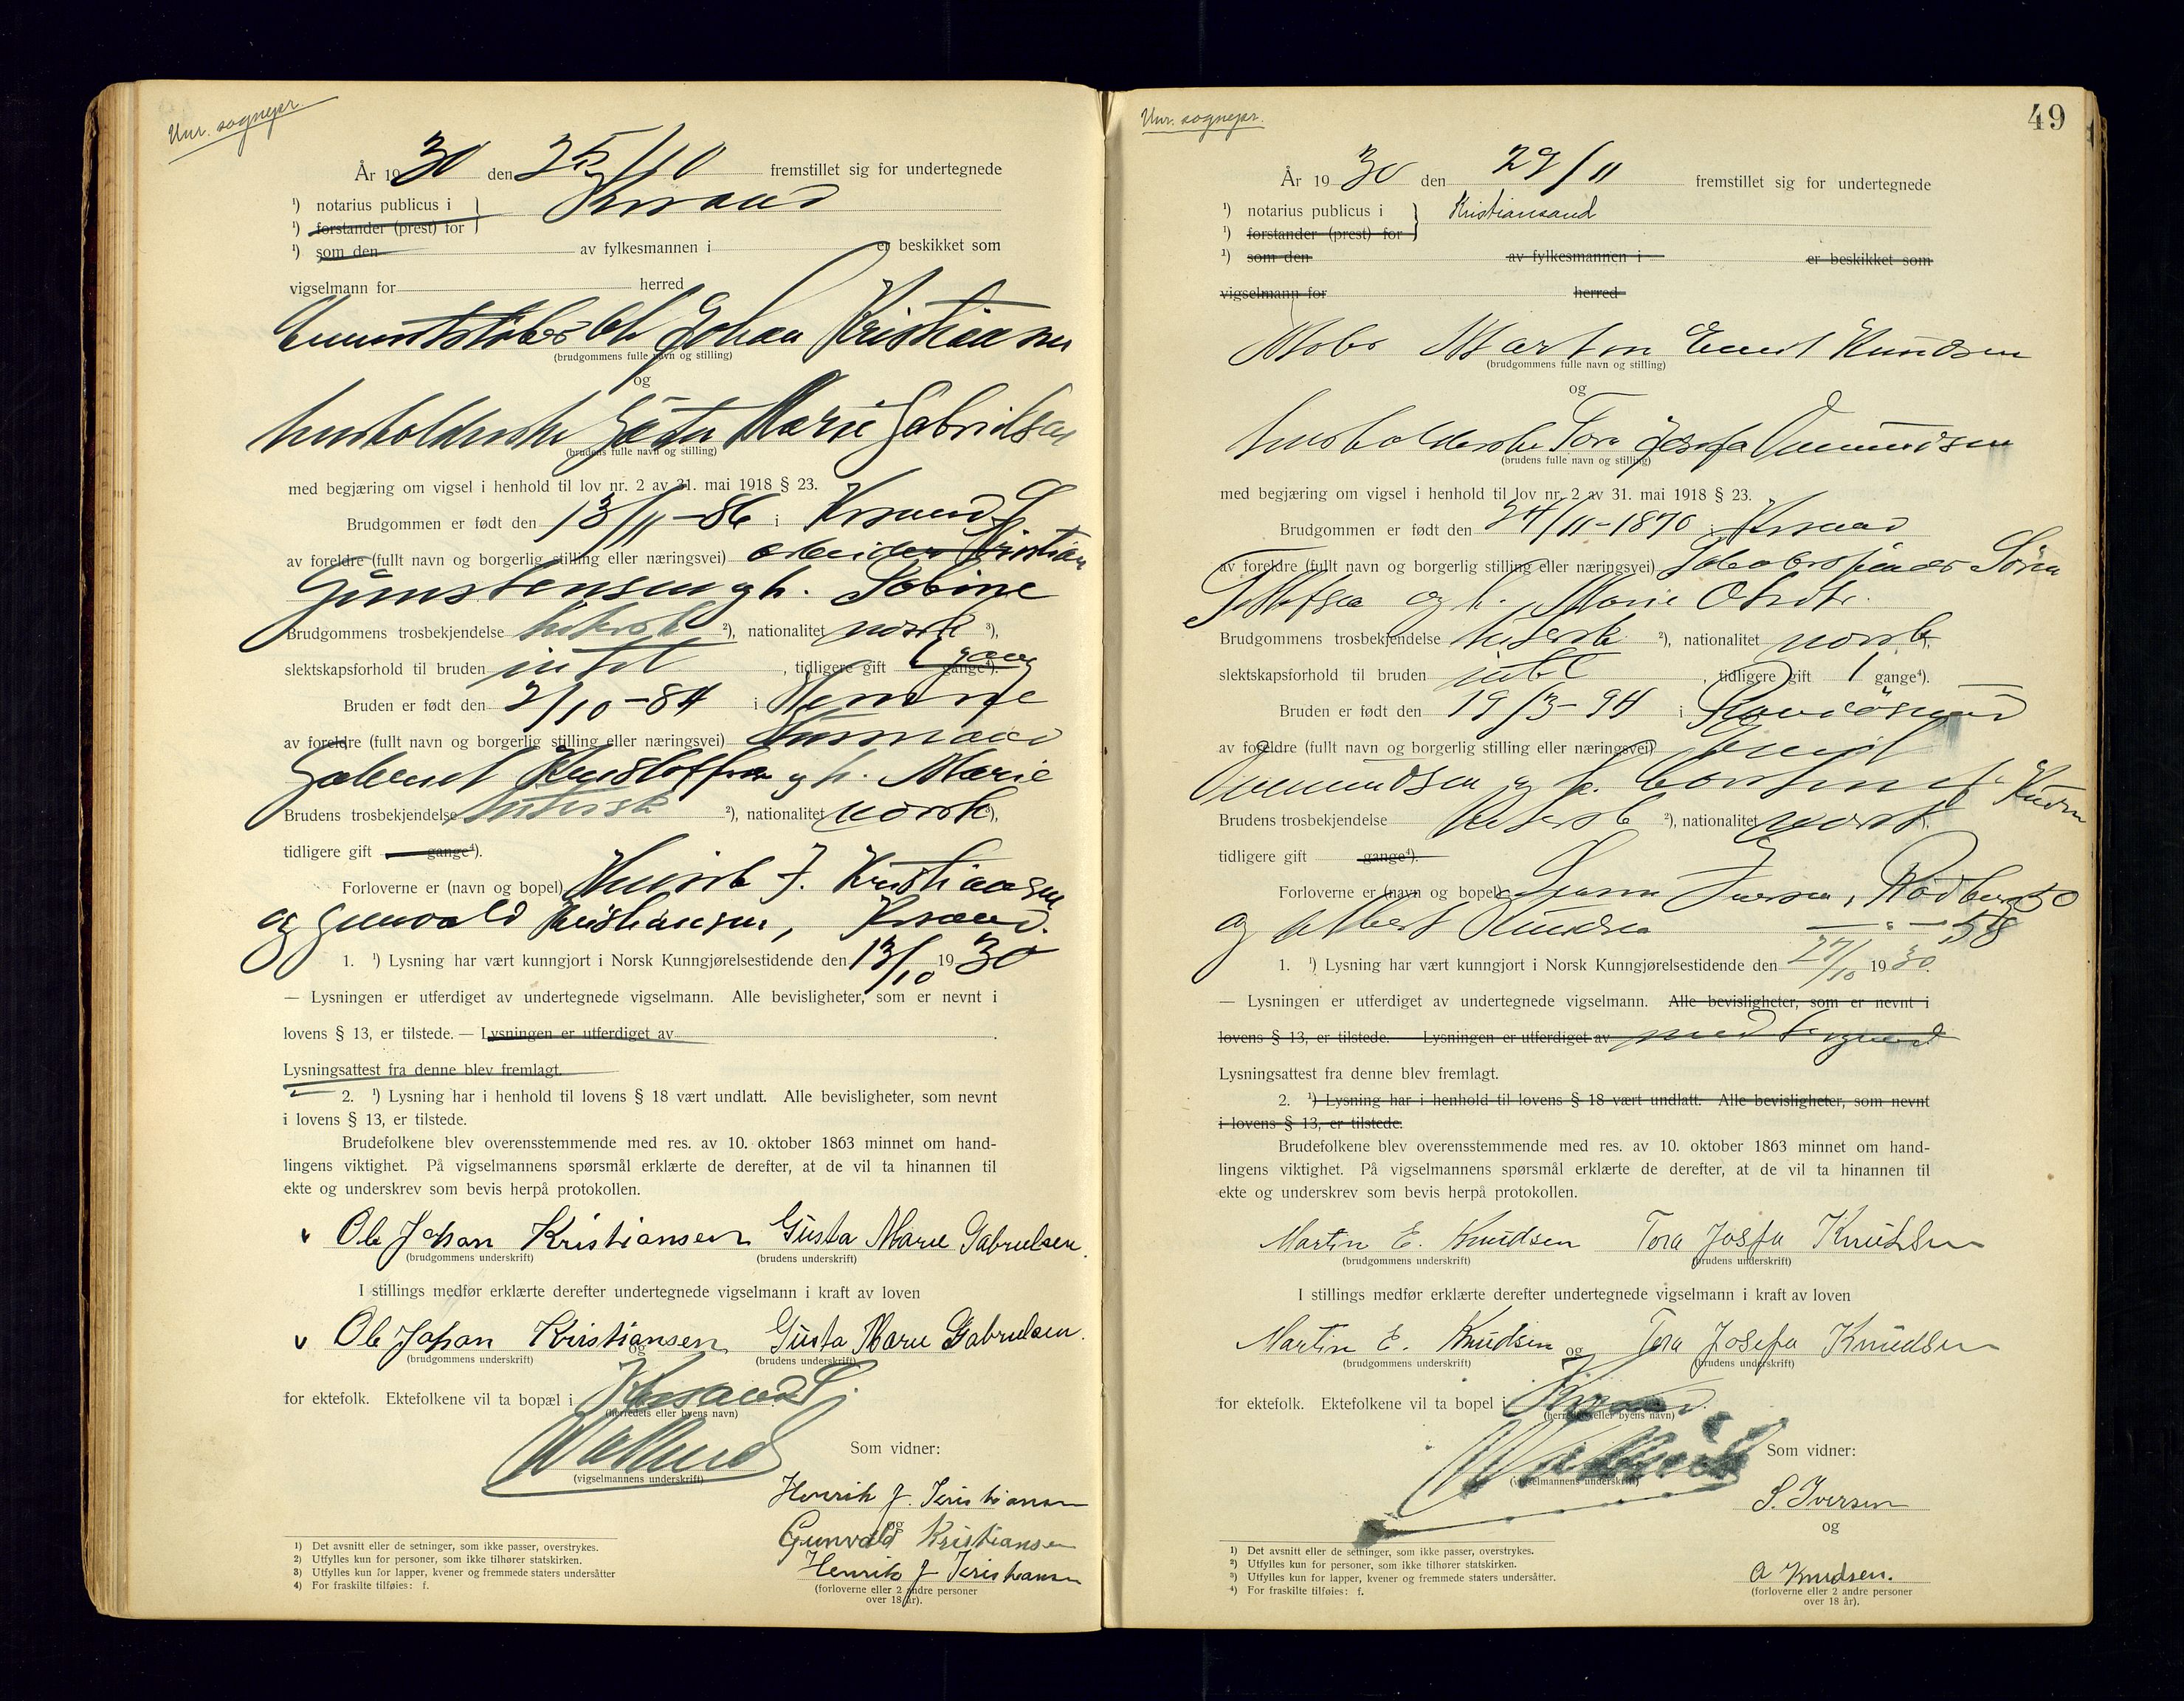 Unr. sognepr.
År 1930 den 25/10 fremstillet sig for undertegnede
¹) notarius publicus i Krsand
¹) forstander (prest) for
¹) som den av fylkesmannen i er beskikket som
vigselmann for herred
Ole Johan Kristiansen
(brudgommens fulle navn og stilling)
og
husholderske Gusta Marie Gabrielsen
(brudens fulle navn og stilling)
med begjæring om vigsel i henhold til lov nr. 2 av 31. mai 1918 § 23.
Brudgommen er født den 13/11-86 i Krsand S
av foreldre (fullt navn og borgerlig stilling eller næringsvei) arbeider Kristian
Gunstensen og h. Sabine
Brudgommens trosbekjendelse luthersk ²), nationalitet norsk ³),
slektskapsforhold til bruden intet, tidligere gift 1 gang gange⁴).
Bruden er født den 2/10-84 i
av foreldre (fullt navn og borgerlig stilling eller næringsvei)
og h. Marie
Brudens trosbekjendelse luthersk ²), nationalitet norsk ³),
tidligere gift gange⁴).
Forloverne er (navn og bopel) Henrik J. Kristiansen
og Gunvald Kristiansen, Krsand.
1. ¹) Lysning har vært kunngjort i Norsk Kunngjørelsestidende den 13/10 1930
— Lysningen er utferdiget av undertegnede vigselmann. Alle bevisligheter, som er nevnt i
lovens § 13, er tilstede. — Lysningen er utferdiget av .
Lysningsattest fra denne blev fremlagt.
2. ¹) Lysning har i henhold til lovens § 18 vært undlatt. Alle bevisligheter, som nevnt
i lovens § 13, er tilstede.
Brudefolkene blev overensstemmende med res. av 10. oktober 1863 minnet om hand-
lingens viktighet. På vigselmannens spørsmål erklærte de derefter, at de vil ta hinannen til
ekte og underskrev som bevis herpå protokollen.
v Ole Johan Kristiansen Gusta Marie Gabrielsen.
(brudgommens underskrift) (brudens underskrift)
I stillings medfør erklærte derefter undertegnede vigselmann i kraft av loven
v Ole Johan Kristiansen og Gusta Marie Gabrielsen.
(brudgommens underskrift) (brudens underskrift)
for ektefolk. Ektefolkene vil ta bopæl i Krsand S.
(herredets eller byens navn)
(vigselmannens underskrift)
Som vidner:
Henrik J. Kristiansen
og
Gunvald Kristiansen
Henrik J Kristiansen
(forloverne eller 2 andre personer
over 18 år).
1) Det avsnitt eller de setninger, som ikke passer, overstrykes.
2) Utfylles kun for personer, som ikke tilhører statskirken.
3) Utfylles kun for lapper, kvener og fremmede staters undersåtter
4) For fraskilte tilføies: f.
49
Unr. sognepr.
År 1930 den 29/11 fremstillet sig for undertegnede
¹) notarius publicus i Kristiansand
¹) forstander (prest) for
¹) som den av fylkesmannen i er beskikket som
vigselmann for herred
Martin Emil Knudsen
(brudgommens fulle navn og stilling)
og
husholderske Tora Josefa
(brudens fulle navn og stilling)
med begjæring om vigsel i henhold til lov nr. 2 av 31. mai 1918 § 23.
Brudgommen er født den 24/11-1870 i Krsand
av foreldre (fullt navn og borgerlig stilling eller næringsvei) Søren
og h. Marie Olsdtr.
Brudgommens trosbekjendelse luthersk ²), nationalitet norsk,
slektskapsforhold til bruden intet, tidligere gift 1 gange⁴).
Bruden er født den 19/3-94 i
av foreldre (fullt navn og borgerlig stilling eller næringsvei)
og h.
Brudens trosbekjendelse luthersk ²), nationalitet norsk,
tidligere gift gange⁴).
Forloverne er (navn og bopel) Iversen, Rødberg 50
og Albert Knudsen — „ — 58
1. ¹) Lysning har vært kunngjort i Norsk Kunngjørelsestidende den 27/10 1930.
— Lysningen er utferdiget av undertegnede vigselmann. Alle bevisligheter, som er nevnt i
lovens § 13, er tilstede. Lysningen er utferdiget av
Lysningsattest fra denne blev fremlagt.
2. ¹) Lysning har i henhold til lovens § 18 vært undlatt. Alle bevisligheter, som nevnt
i lovens § 13, er tilstede.
Brudefolkene blev overensstemmende med res. av 10. oktober 1863 minnet om hand-
lingens viktighet. På vigselmannens spørsmål erklærte de derefter, at de vil ta hinannen til
ekte og underskrev som bevis herpå protokollen.
Martin E. Knudsen Tora Josfa Knudsen
(brudgommens underskrift) (brudens underskrift)
I stillings medfør erklærte derefter undertegnede vigselmann i kraft av loven
Martin E. Knudsen og Tora Josefa Knudsen
(brudgommens underskrift) (brudens underskrift)
for ektefolk. Ektefolkene vil ta bopel i Krsand.
(herredets eller byens navn)
(vigselmannens underskrift)
Som vidner:
S. Iversen
og
A Knudsen.
(forloverne eller 2 andre personer
over 18 år).
¹) Det avsnitt eller de setninger, som ikke passer, overstrykes.
²) Utfylles kun for personer, som ikke tilhører statskirken.
³) Utfylles kun for lapper, kvener og fremmede staters undersåtter.
⁴) For fraskilte tilføies: f.